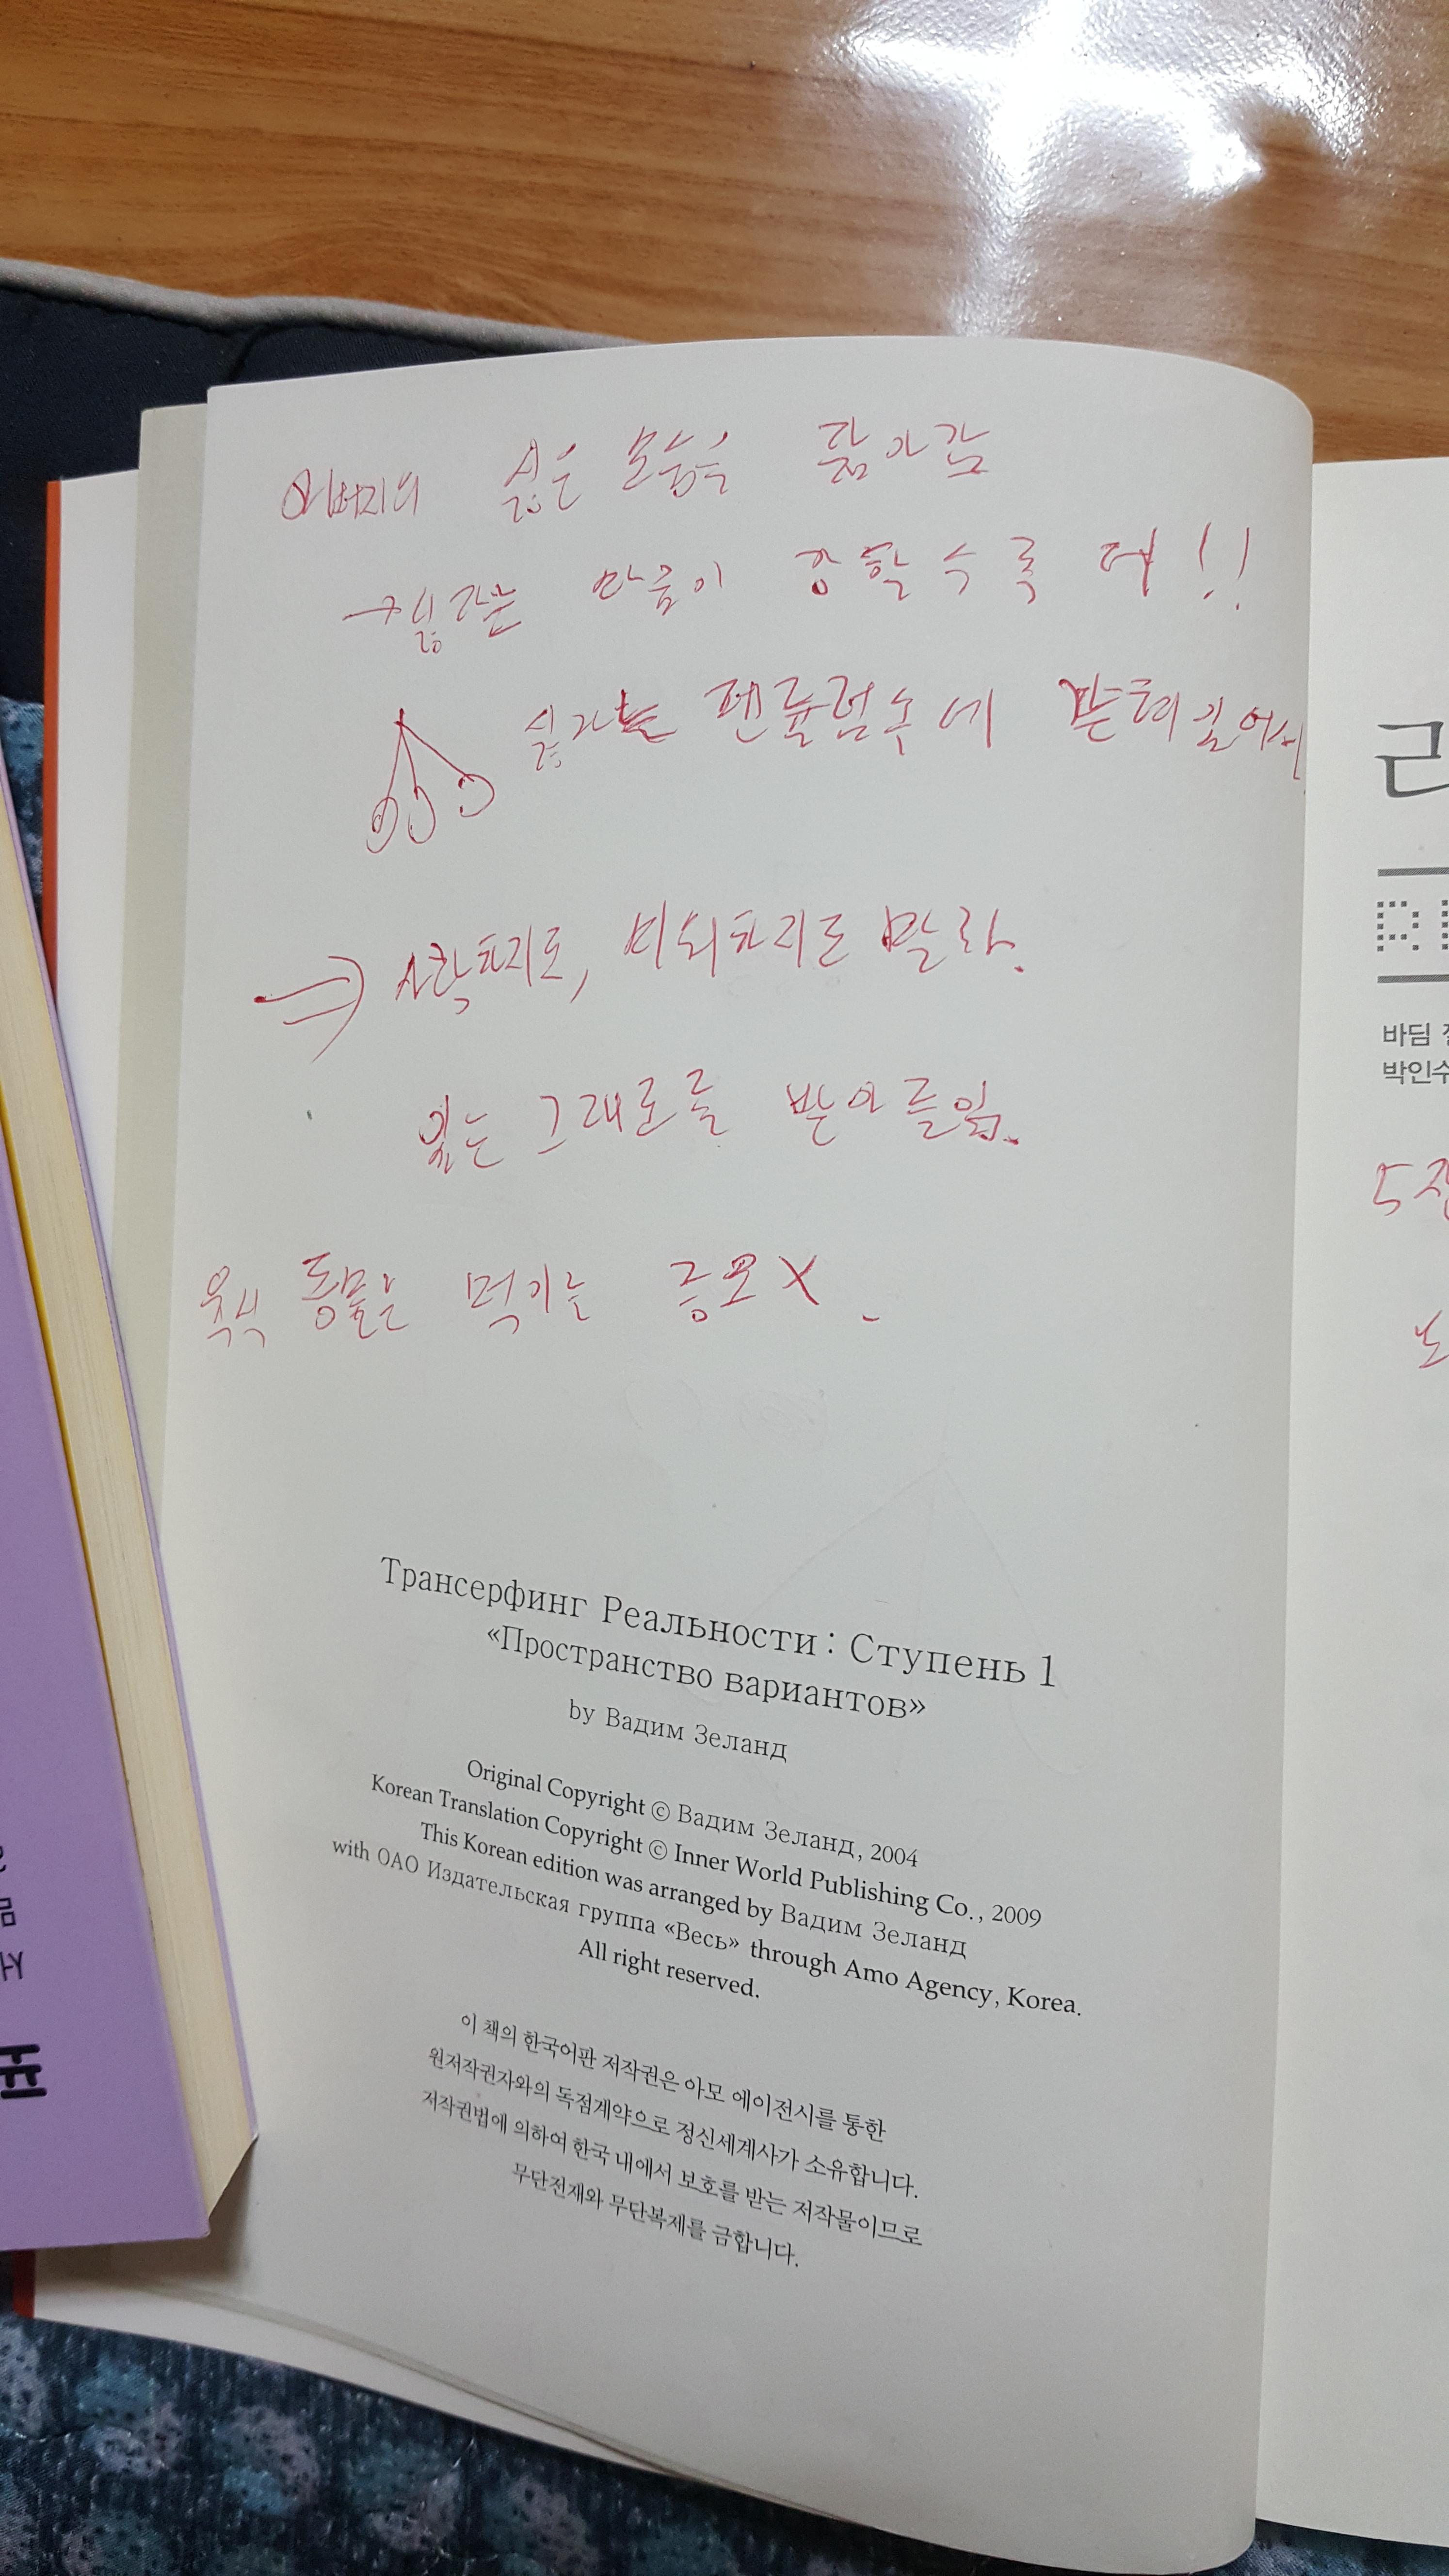 아버지의 싫은 모습을 닮아감
→ 싫다는 마음이 강할수록 더!!
싫다는 펜듈럼 속에
⇒ 사랑하지도, 미워하지도 말라.
있는 그대로를 받아들임.
육식 동물은 먹이는 증오X.
Трансерфинг Реальности : Ступень 1
«Пространство вариантов»
by Вадим Зеланд
Original Copyright ⓒ Вадим Зеланд, 2004
Korean Translation Copyright ⓒ Inner World Publishing Co., 2009
This Korean edition was arranged by Вадим Зеланд
with ОАО Издательская группа «Весь» through Amo Agency, Korea.
All right reserved.
이 책의 한국어판 저작권은 아모 에이전시를 통한
원저작권자와의 독점계약으로 정신세계사가 소유합니다.
저작권법에 의하여 한국 내에서 보호를 받는 저작물이므로
무단전재와 무단복제를 금합니다.
바딤
박인수